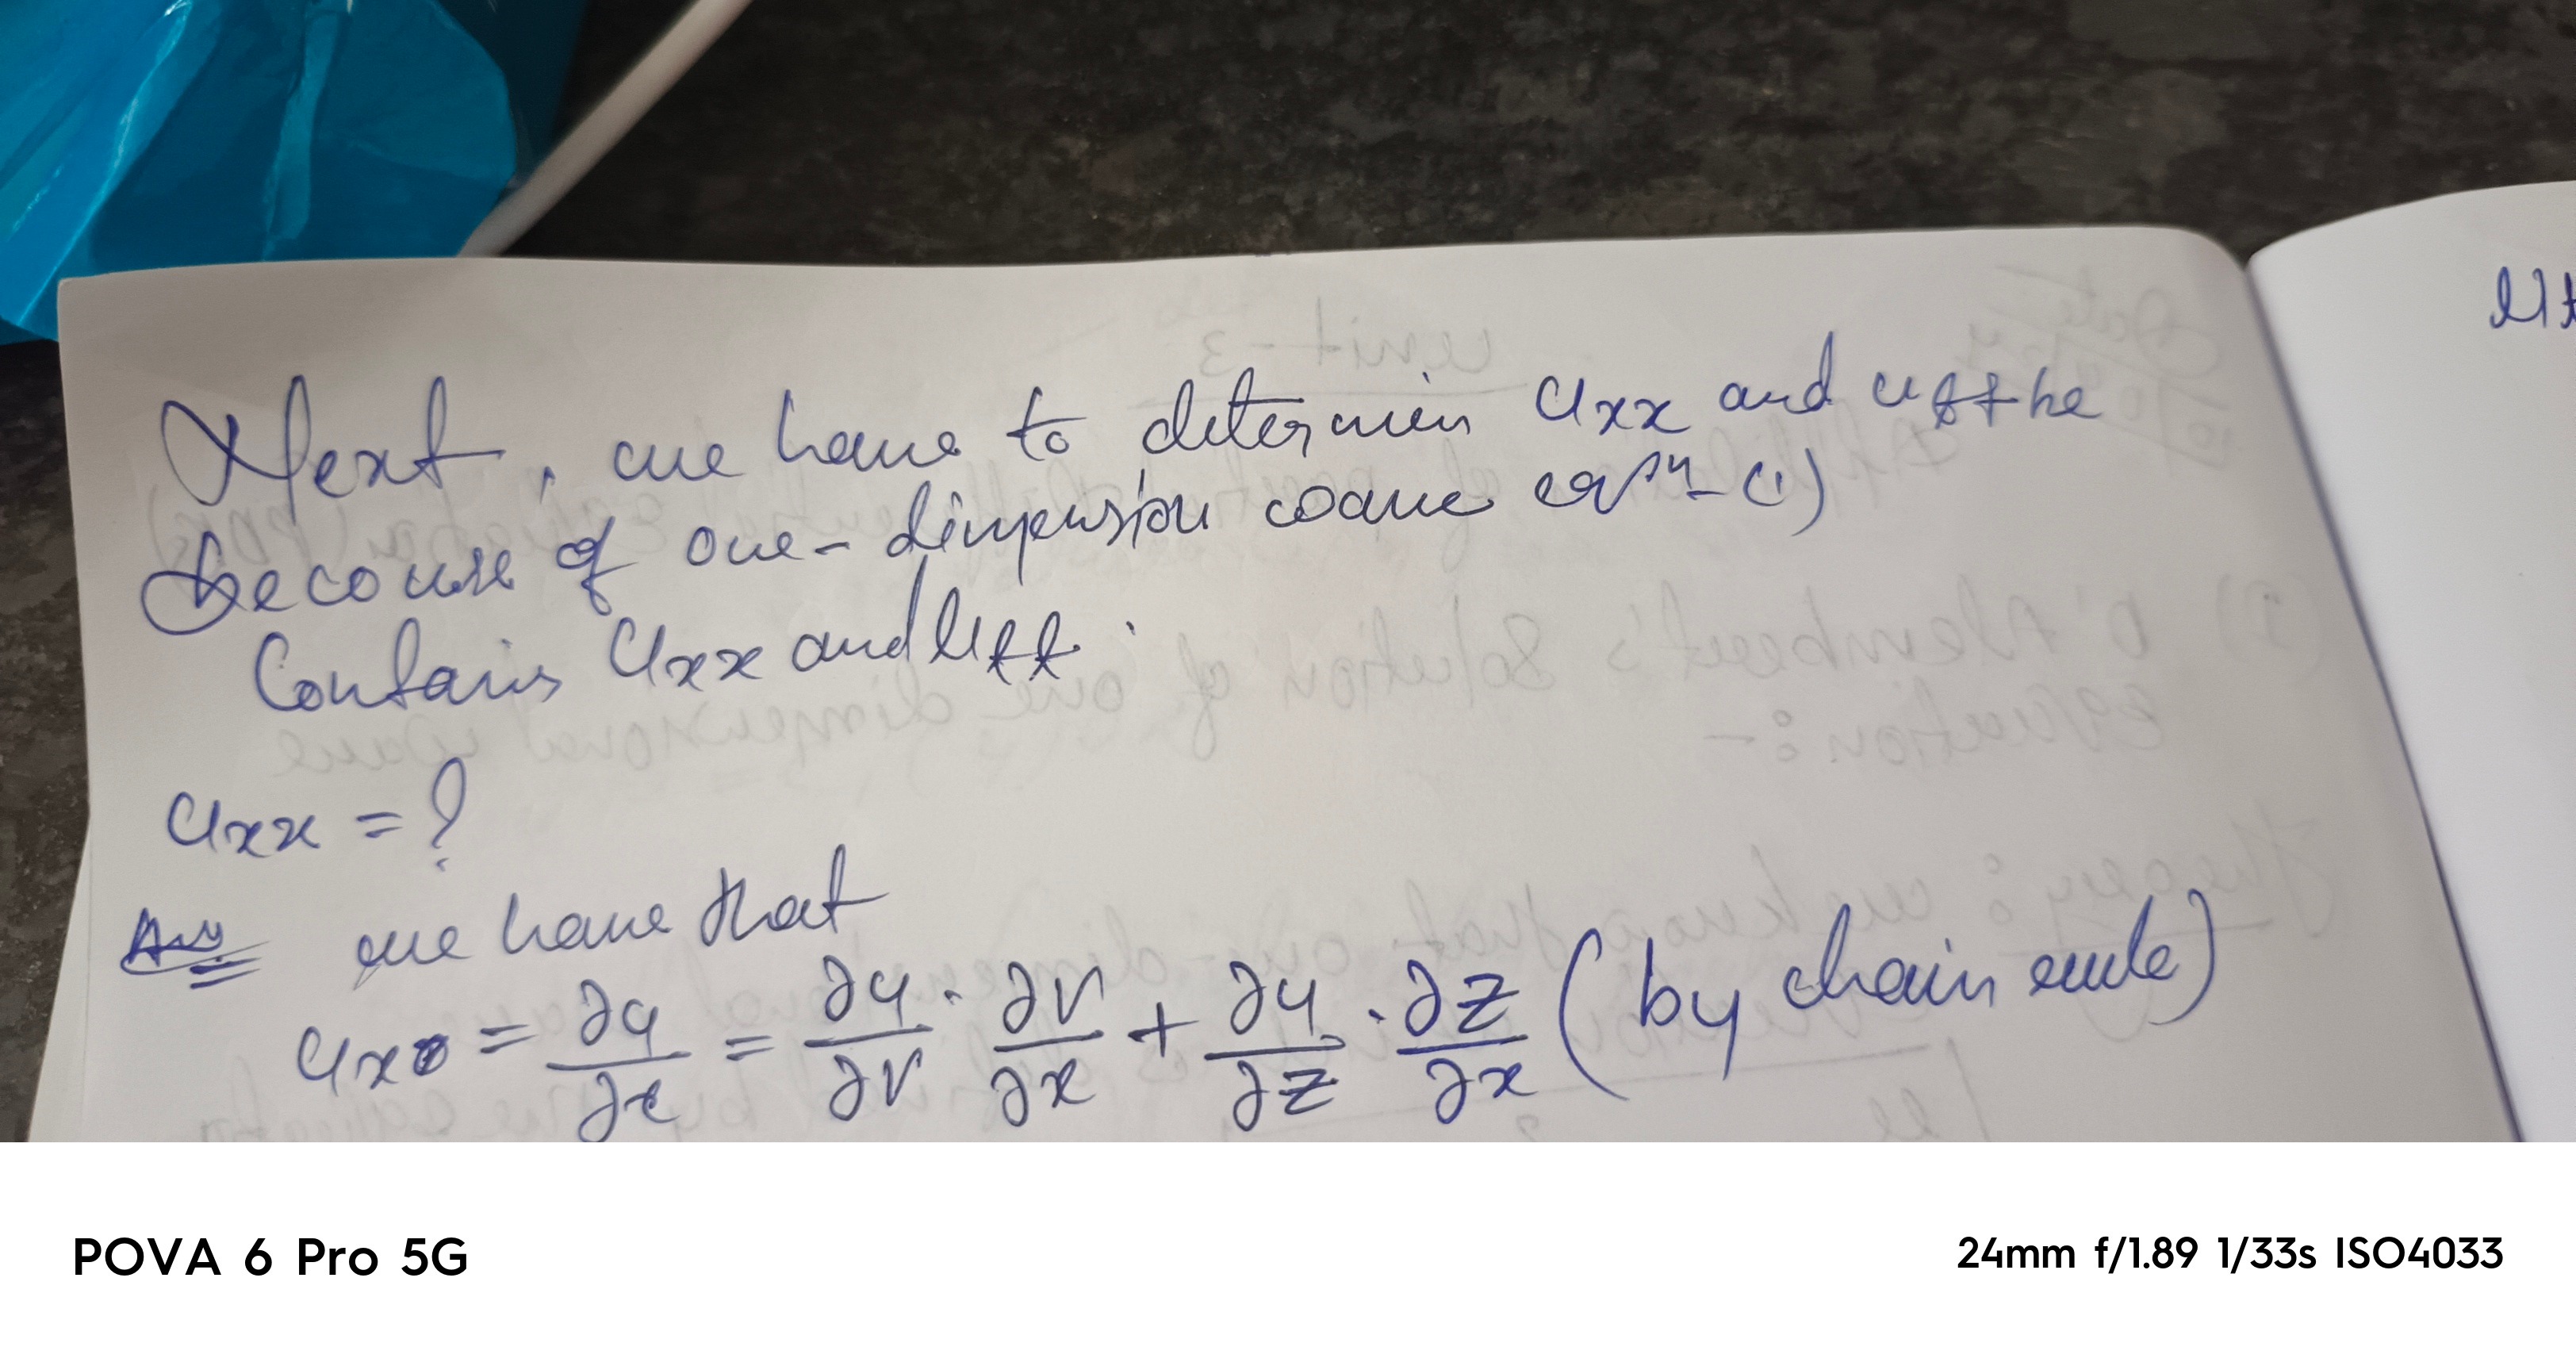 Next, we have to determien uxx and utt he
becouse of one-dimpension wave eqⁿ-(1)
Contains uxx and utt.
uxx = ?
Ans we have that
ux = ∂u/∂x = ∂u/∂v · ∂v/∂x + ∂u/∂z · ∂z/∂x (by chain rule)
POVA 6 Pro 5G
24mm f/1.89 1/33s ISO4033